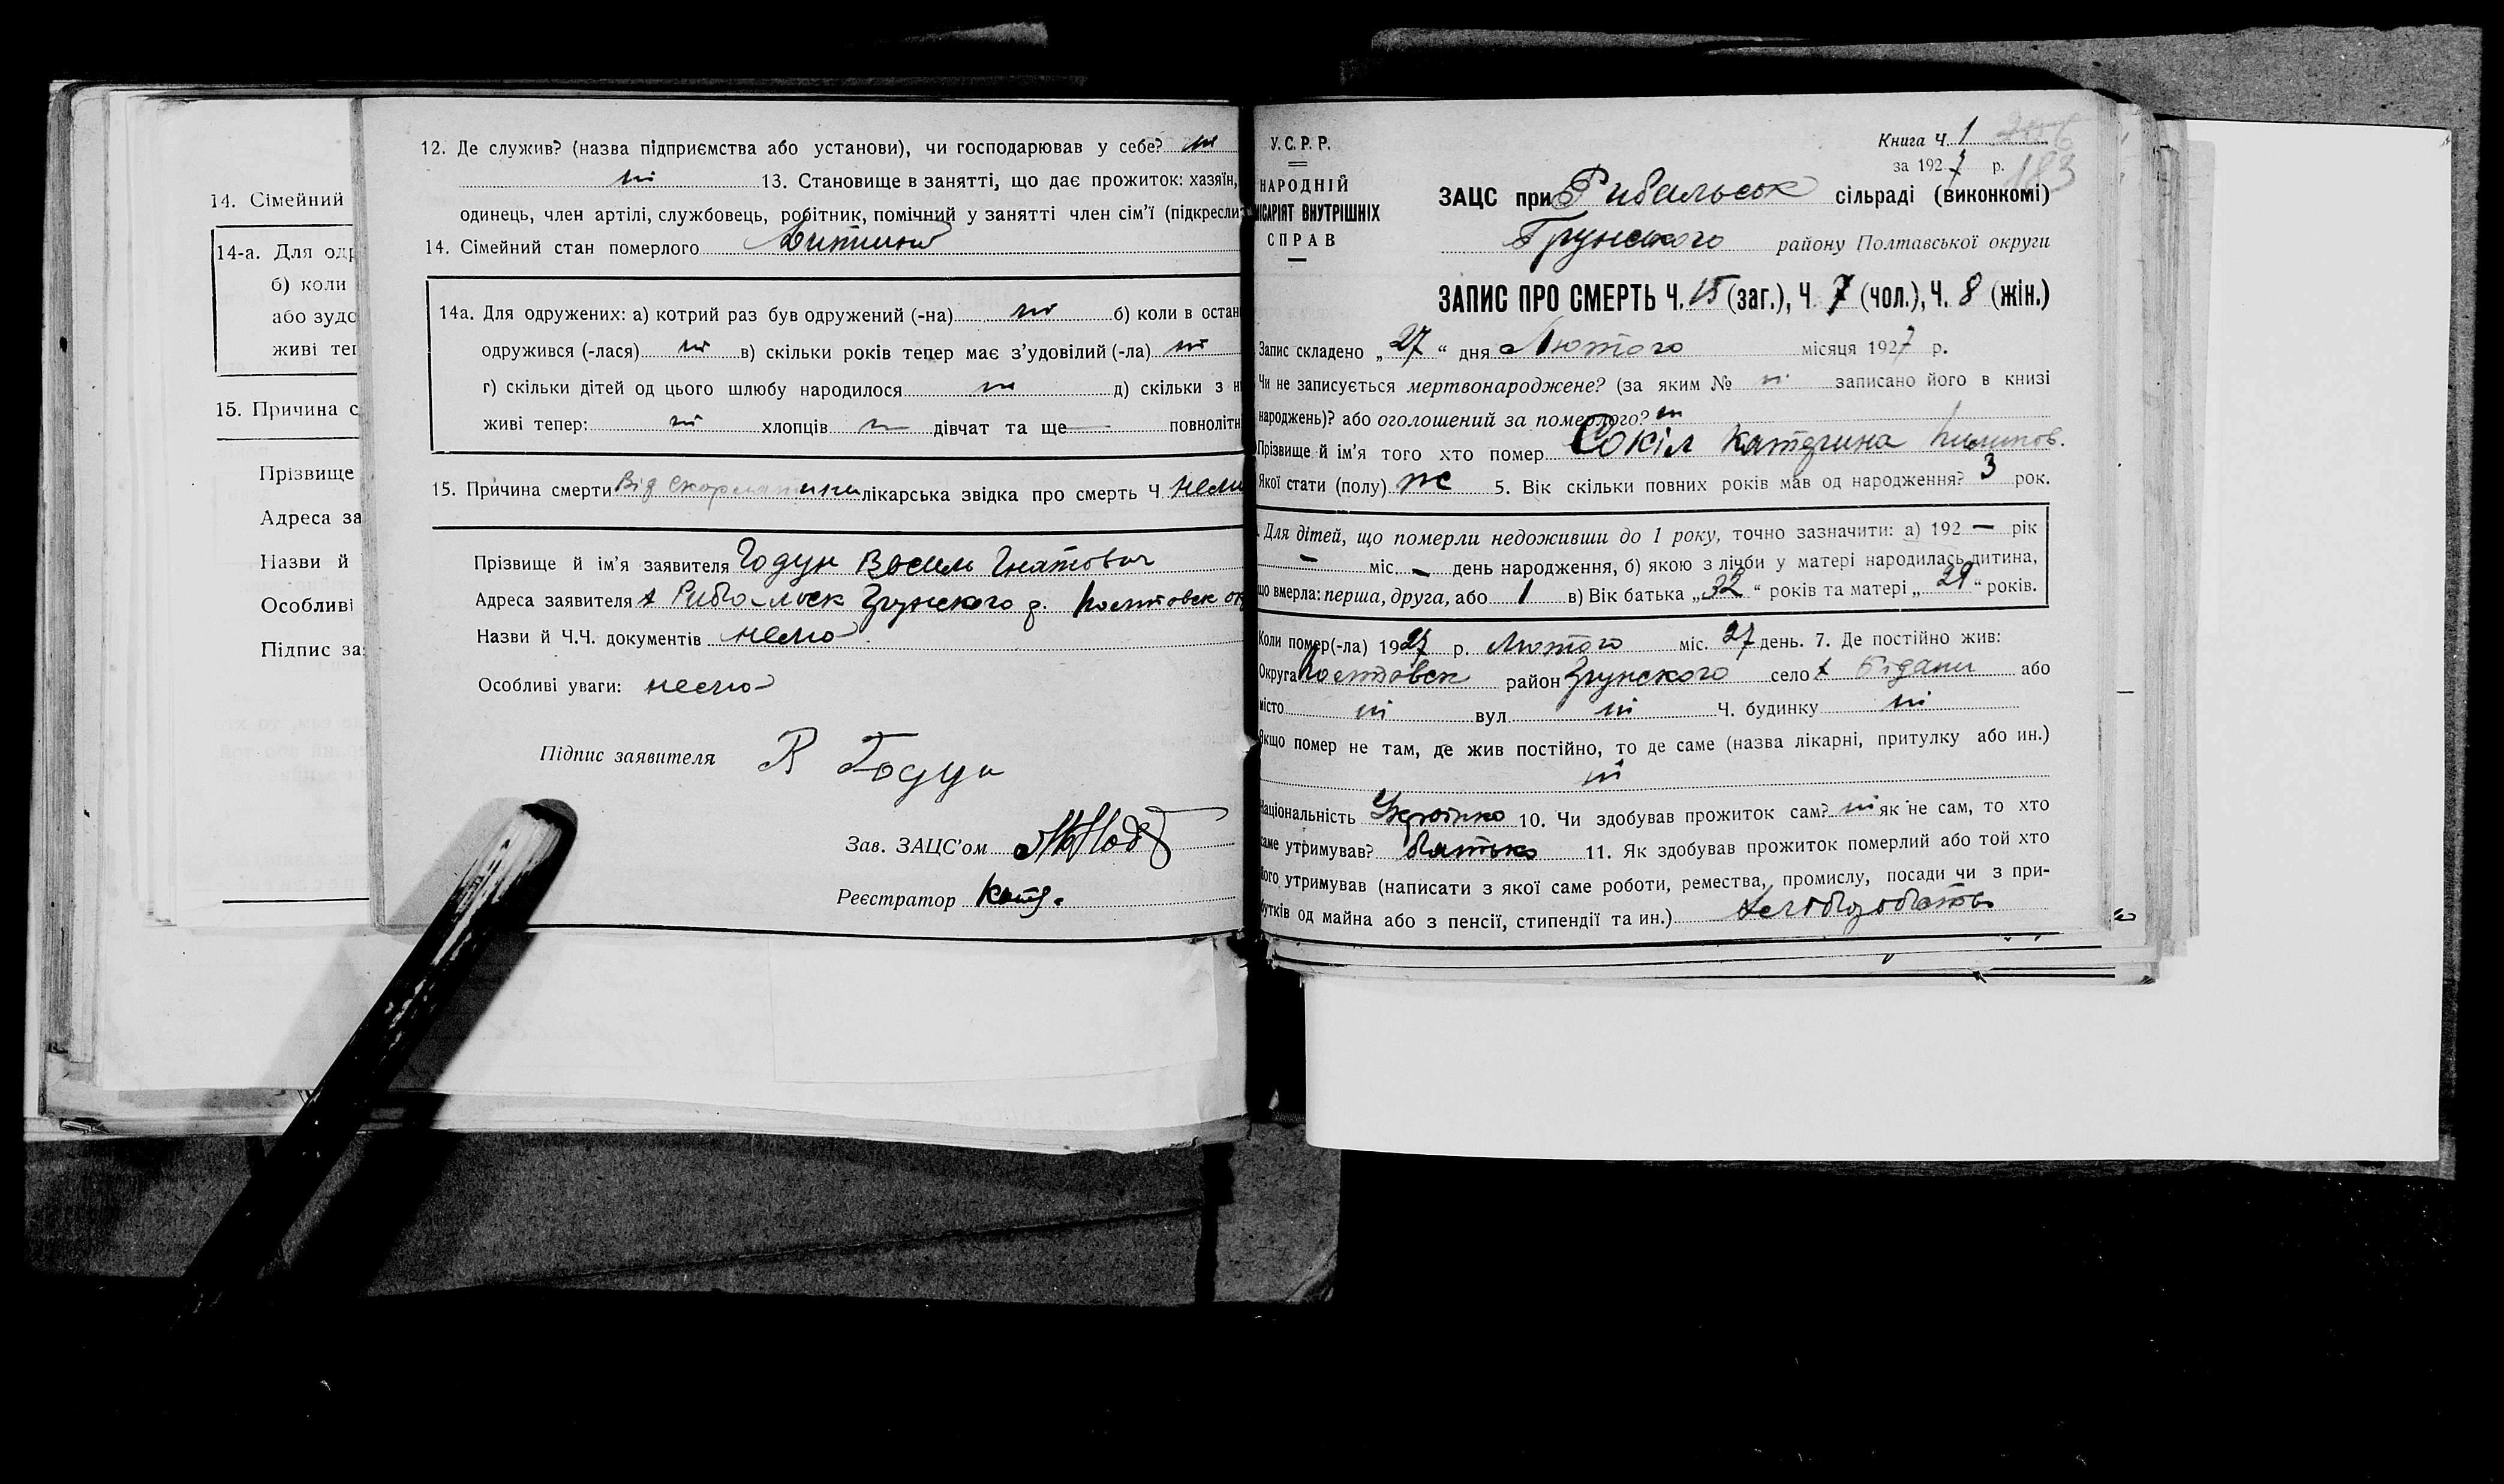 14. Сімейний
14-а. Для одр
б) коли
або зудо
живі теп
15. Причина с
Прізвище
Адреса за
Назви й
Особливі
Підпис за
12. Де служив? (назва підприємства або установи), чи господарював у себе? ні
ні 13. Становище в занятті, що дає прожиток: хазяїн,
одинець, член артілі, службовець, робітник, помічний у занятті член сім'ї (підкресли
14. Сімейний стан померлого Дитина
14а. Для одружених: а) котрий раз був одружений (-на) ні б) коли в остан
одружився (-лася) ні в) скільки років тепер має з'удовілий (-ла) ні
г) скільки дітей од цього шлюбу народилося ні д) скільки з н
живі тепер: ні хлопців ні дівчат та ще — повнолітн
15. Причина смерти Від скарлатини лікарська звідка про смерть Ч нема
Прізвище й ім'я заявителя Годун Василь Гнатович
Адреса заявителя х Рибальск Грунского р. Полтавск ок
Назви й Ч.Ч. документів нема
Особливі уваги: нема
Підпис заявителя В Годун
Зав. ЗАЦС'ом
Реєстратор
У.С.Р.Р.
НАРОДНІЙ
ІСАРІЯТ ВНУТРІШНІХ
СПРАВ
Книга Ч. 1
за 1927 р. 183
ЗАЦС при Рибальськ сільраді (виконкомі)
Грунського району Полтавської округи
ЗАПИС ПРО СМЕРТЬ Ч. 15 (заг.), Ч. 7 (чол.), Ч. 8 (жін.)
Запис складено „27“ дня Лютого місяця 1927 р.
Чи не записується мертвонароджене? (за яким № ні записано його в книзі
народжень)? або оголошений за померлого? ні
Прізвище й ім'я того хто помер Сокіл Катерина Пилипов.
Якої стати (полу) ж 5. Вік скільки повних років мав од народження? 3 рок.
Для дітей, що померли недоживши до 1 року, точно зазначити: а) 192 — рік
— міс. — день народження, б) якою з лічби у матері народилась дитина,
що вмерла: перша, друга, або 1 в) Вік батька „32“ років та матері „29“ років.
Коли помер(-ла) 1927 р. Лютого міс. 27 день. 7. Де постійно жив:
Округа Полтавск район Грунского село х Бідани або
місто ні вул ні Ч. будинку ні
Якщо помер не там, де жив постійно, то де саме (назва лікарні, притулку або ин.)
ні
Національність Українка 10. Чи здобував прожиток сам? ні як не сам, то хто
саме утримував? батько 11. Як здобував прожиток померлий або той хто
його утримував (написати з якої саме роботи, ремества, промислу, посади чи з при-
бутків од майна або з пенсії, стипендії та ин.) хліборобство